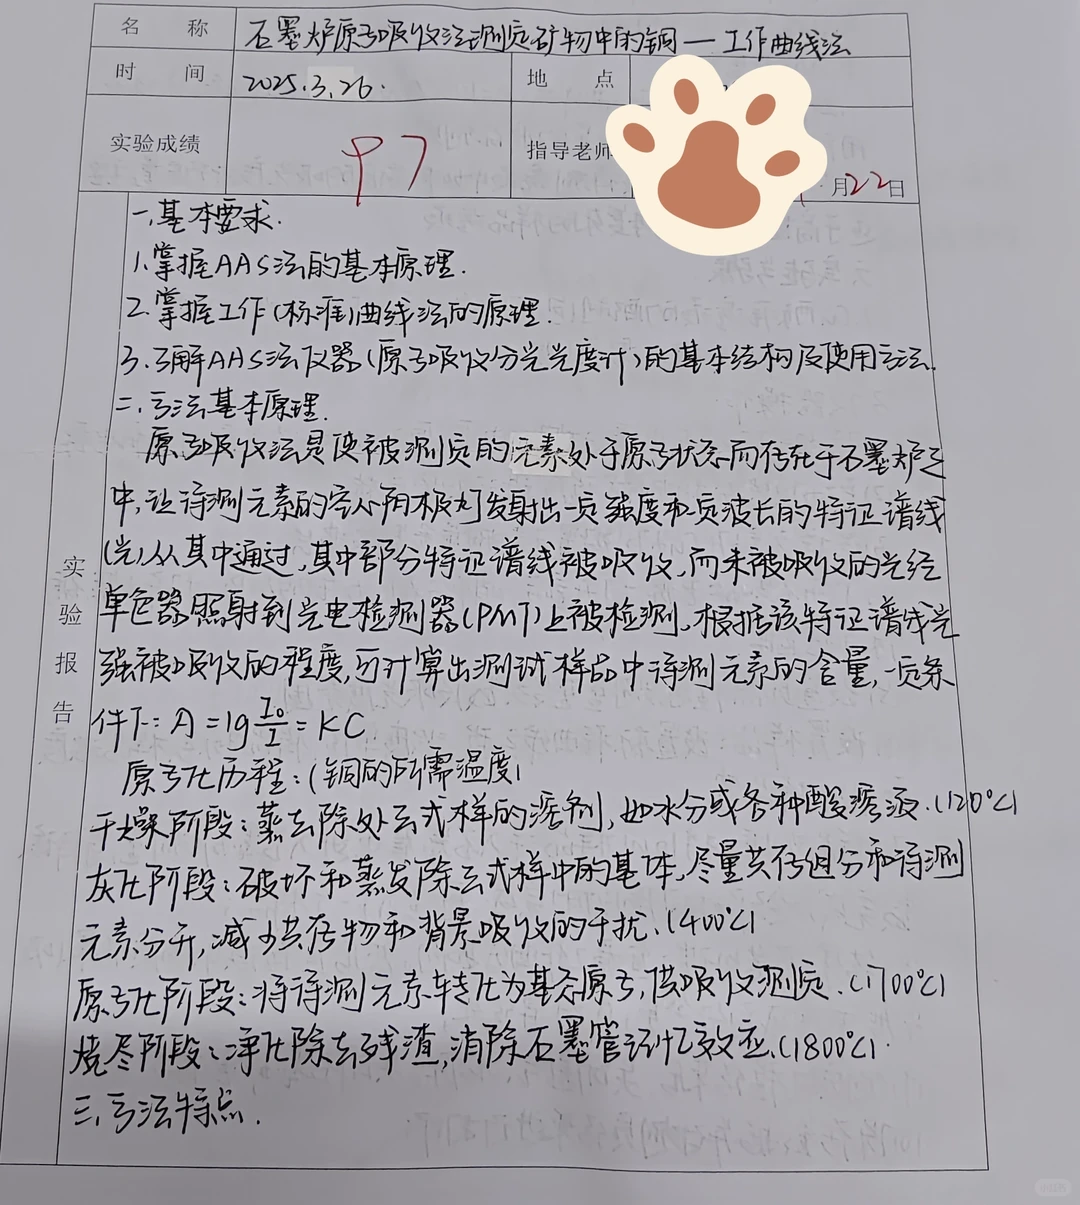 名 称 石墨炉原子吸收法测定矿物中的铜—工作曲线法
时 间 2025.3.26. 地 点
实验成绩 97 指导老师
月22日
实验报告
一、基本要求.
1.掌握AAS法的基本原理.
2.掌握工作(标准)曲线法的原理.
3.了解AAS法仪器(原子吸收分光光度计)的基本结构及使用方法.
二、方法基本原理.
原子吸收法是使被测定的元素处于原子状态而存在于石墨炉之
中,让待测元素的空心阴极灯发射出一定强度和一定波长的特征谱线
(光)从其中通过,其中部分特征谱线被吸收,而未被吸收的光经
单色器照射到光电检测器(PMT)上被检测,根据该特征谱线光
强被吸收的程度,可计算出测试样品中待测元素的含量,一定条
件下:A=lg I₀/I=KC
原子化历程:(铜的所需温度)
干燥阶段:蒸去除处去式样的溶剂,如水分或各种酸溶液.(120℃)
灰化阶段:破坏和蒸发除去试样中的基体,尽量共存组分和待测
元素分开,减少共存物和背景吸收的干扰.(400℃)
原子化阶段:将待测元素转化为基态原子,供吸收测定.(1700℃)
烧尽阶段:净化除去残渣,消除石墨管记忆效应.(1800℃).
三、方法特点.
小红书